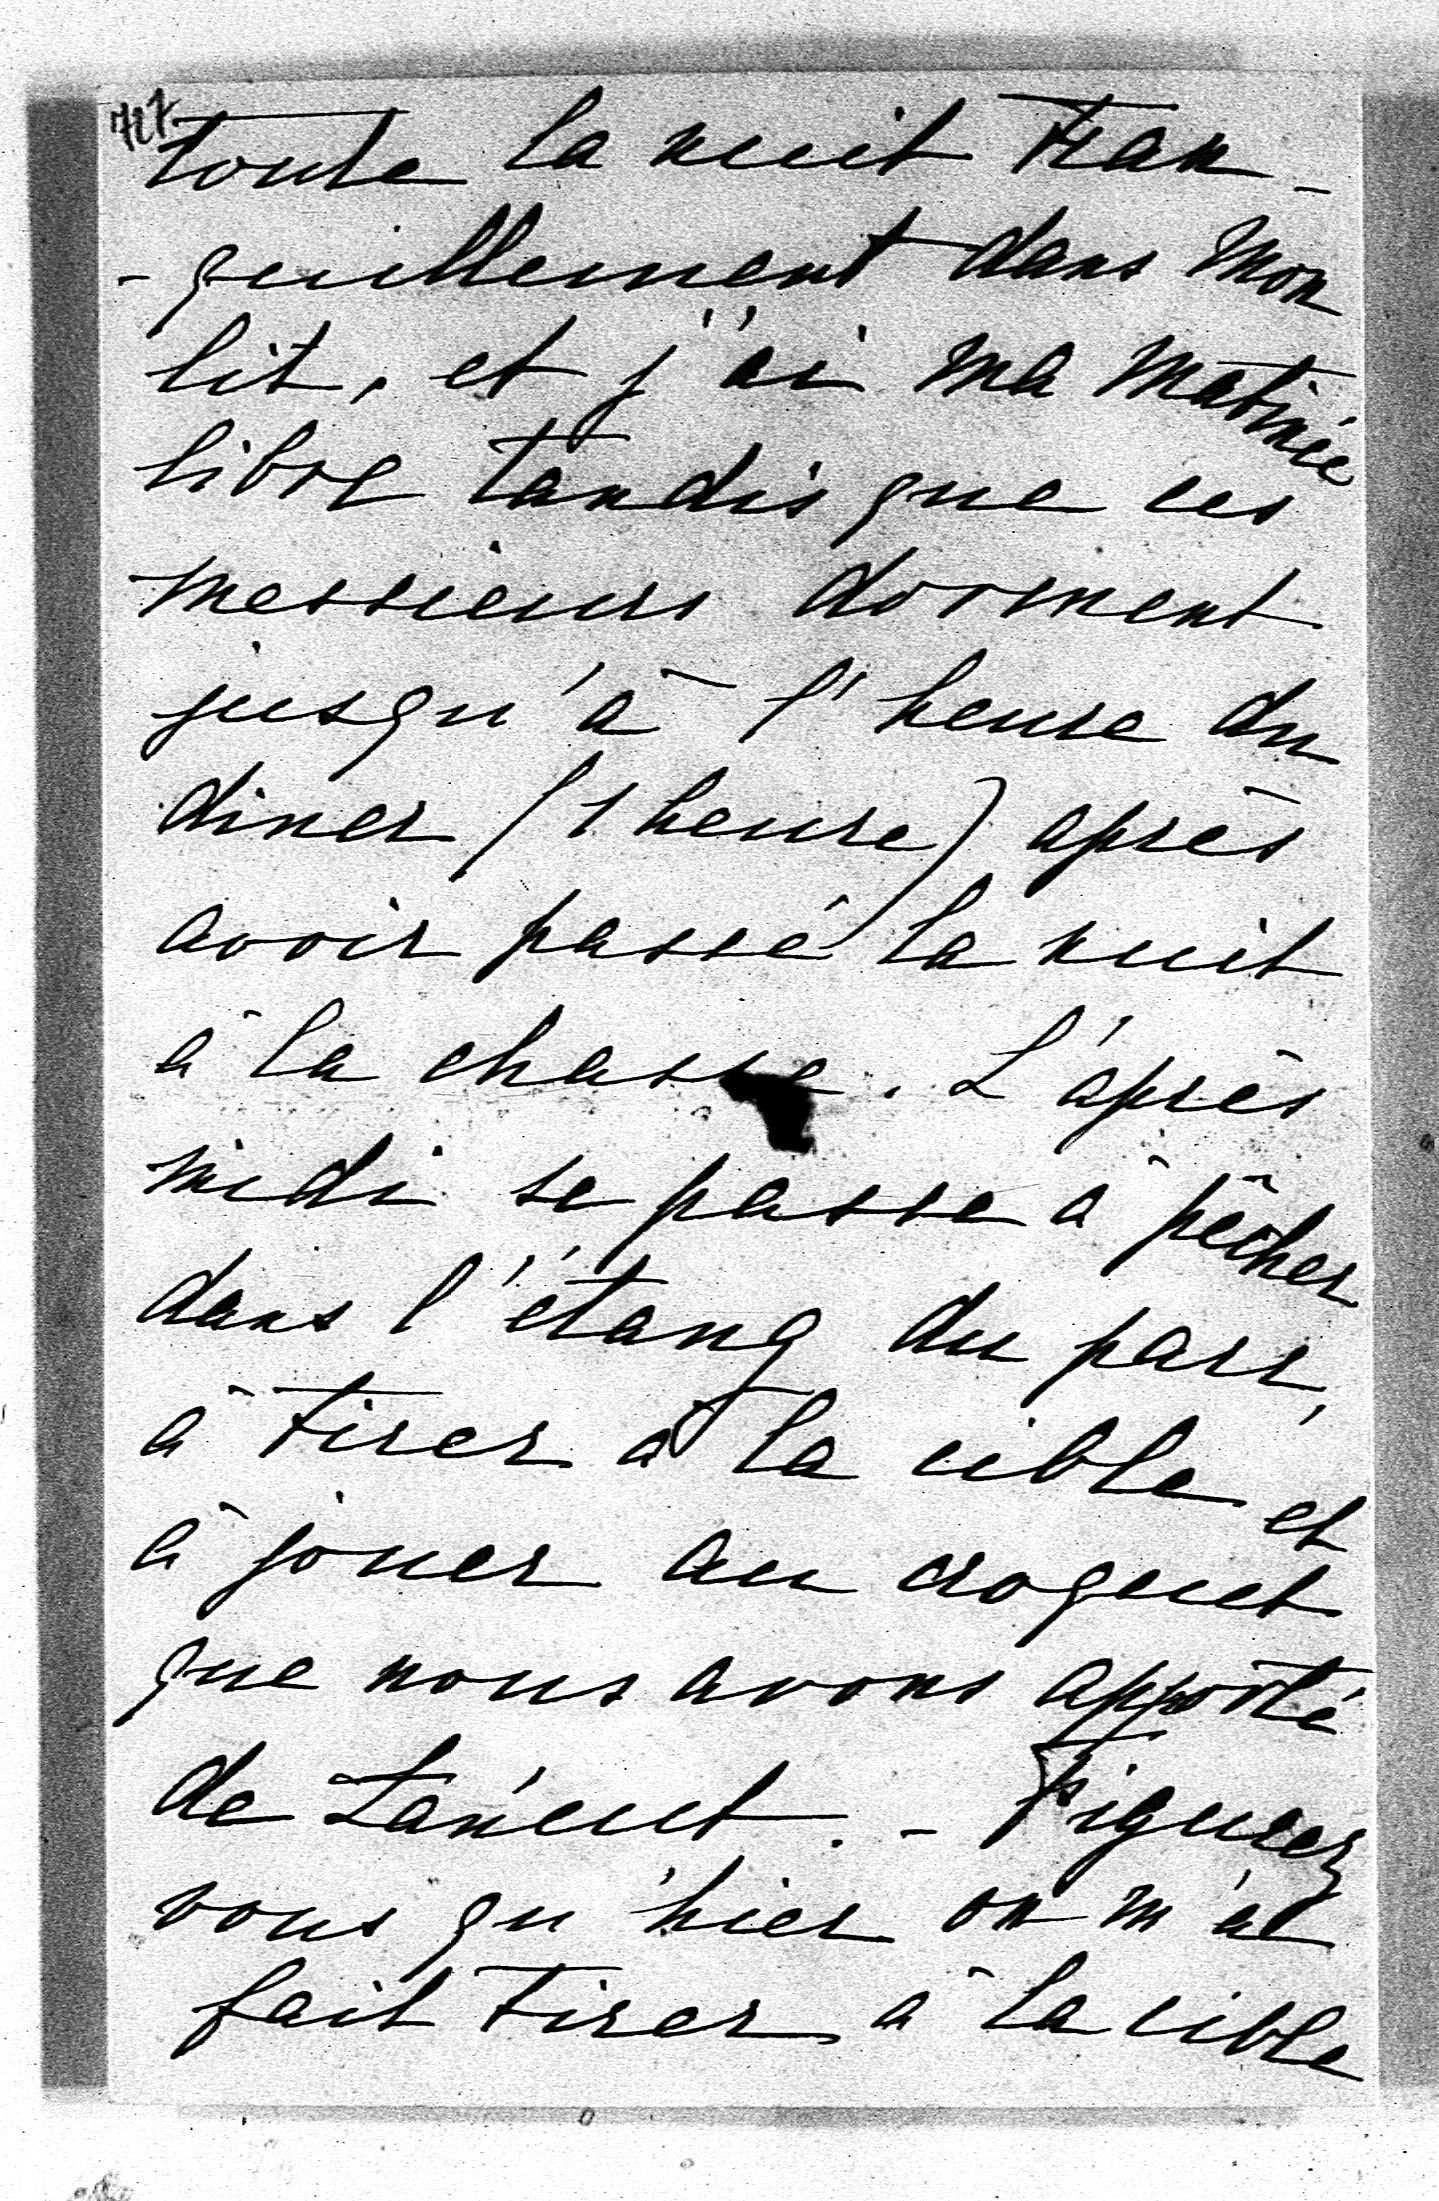 727
toute la nuit tran-
-quillement dans mon
lit, et j'ai ma matinée
libre tandis que ces
messieurs dorment
jusqu'à l'heure du
diner (1 heure) après
avoir passé la nuit
à la chasse. L'après
midi se passe à pêcher
dans l'étang du parc,
à tirer à la cible et
à jouer au croquet
que nous avons apporté
de . - Figurez
vous qu'hier on m'a
fait tirer à la cible